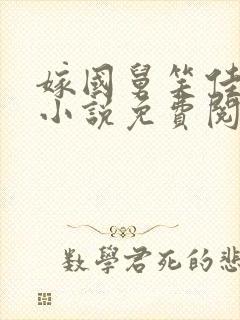 嫁國舅笑佳
小說免費閱
數學君死的悲